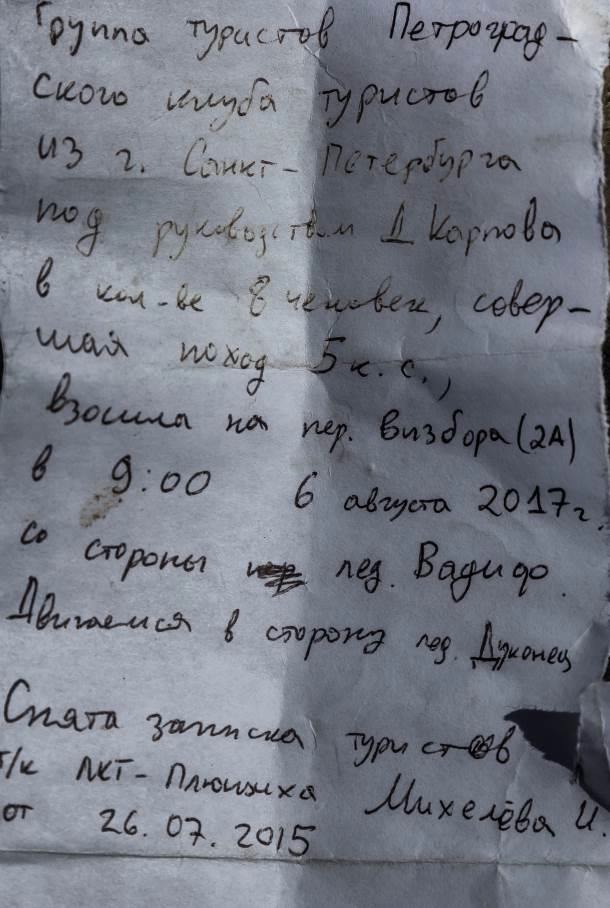 Группа туристов Петроград-
ского клуба туристов
из г. Санкт-Петербурга
под руководством Д Карпова
в кол-ве 8 человек, совер-
шая поход 5 к. с.,
взошла на пер. Визбора (2А)
в 9:00 6 августа 2017 г.
со стороны лед. Вадифо.
Двигаемся в сторону лед. Дуконец
Снята записка туристов
т/к ЛКТ-Плющиха Михелёва И.
от 26.07.2015